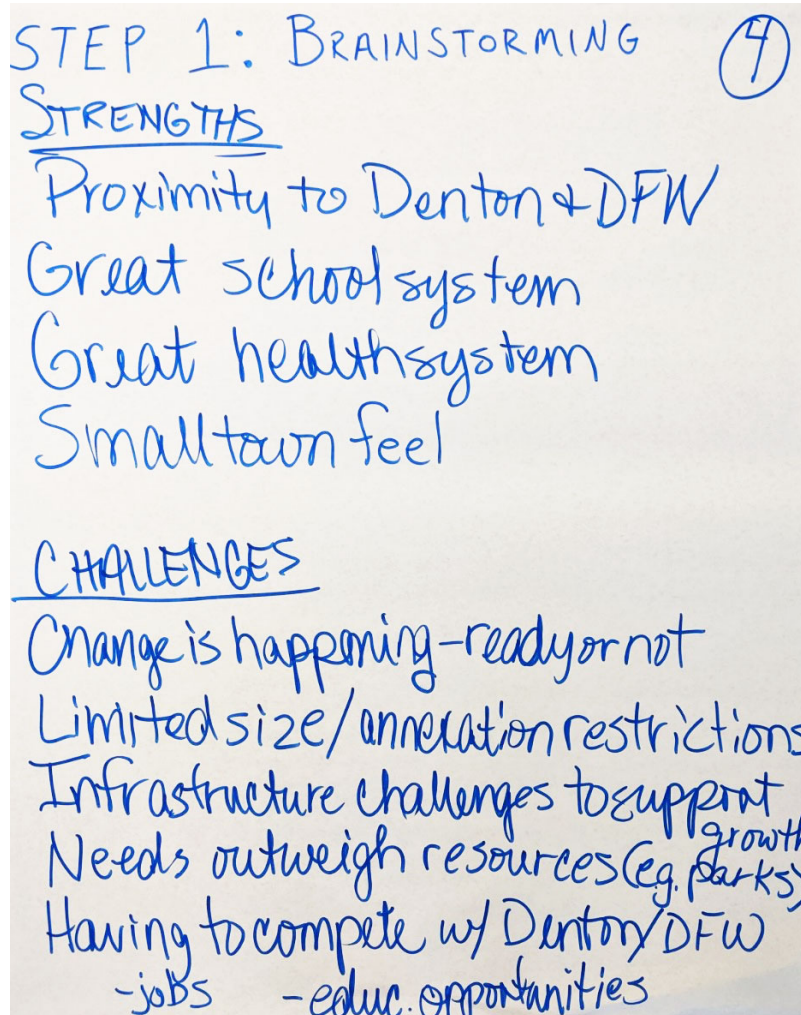 STEP 1: BRAINSTORMING 4
STRENGTHS
Proximity to Denton & DFW
Great school system
Great health system
Small town feel
CHALLENGES
Change is happening - ready or not
Limited size/annexation restrictions
Infrastructure challenges to support
growth
Needs outweigh resources (eg. parks)
Having to compete w/ Denton/DFW
-jobs -educ. opportunities